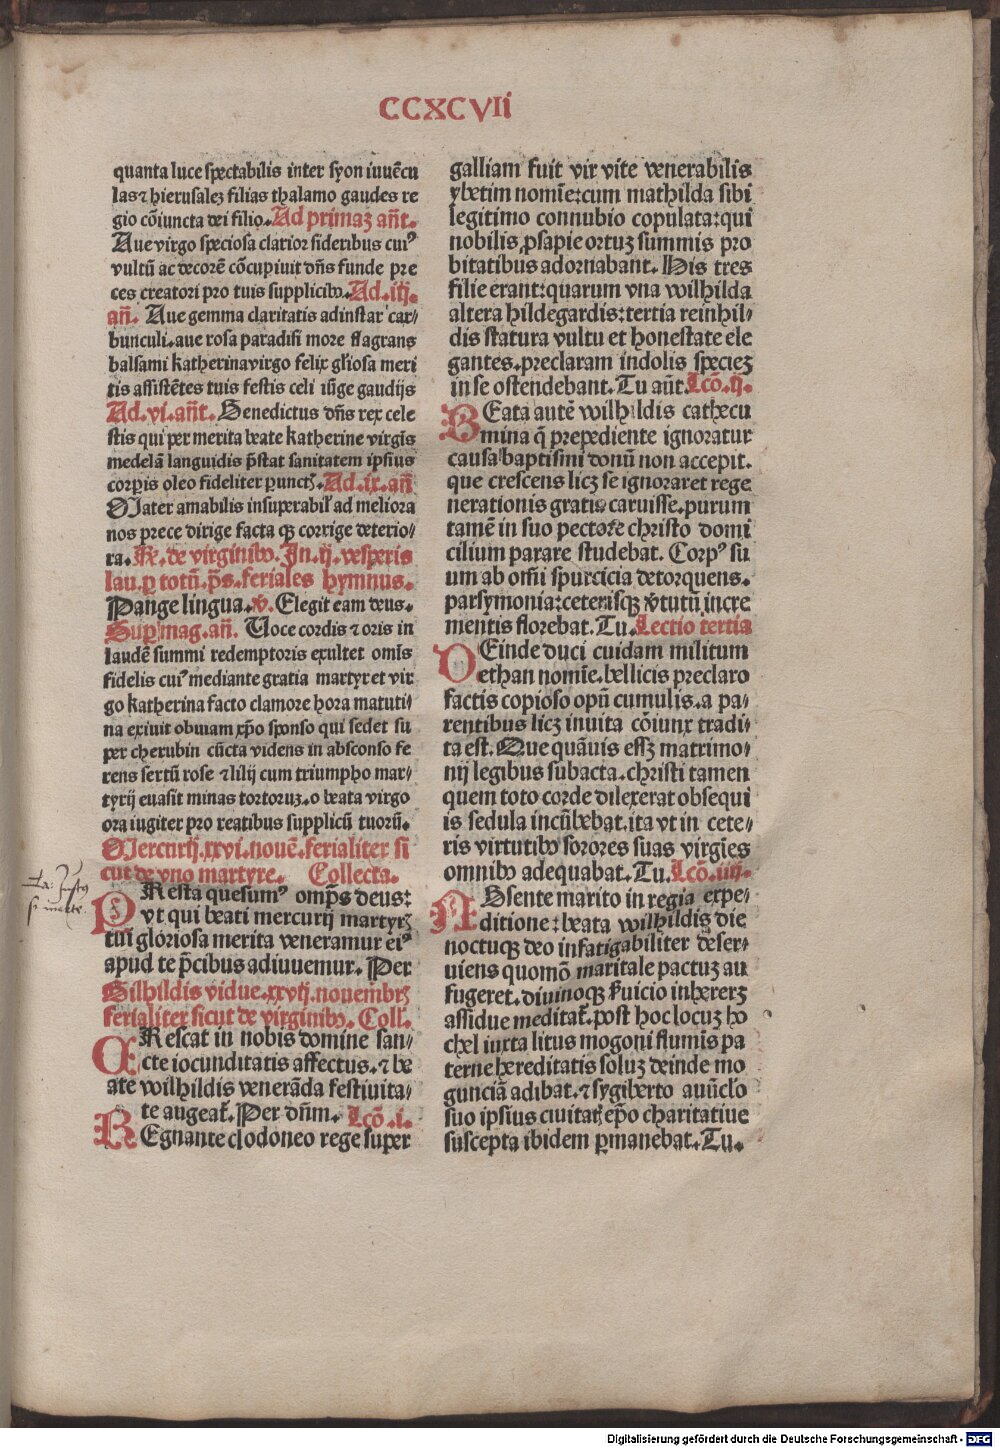 CCXCVII
quanta luce spectabilis inter syon iuuēcu
las⁊ hierusaleꝫ filias thalamo gaudes re
gio cōiuncta dei filio. Ad primaꝫ añt.
Aue virgo speciosa clarior sideribus cuiꝰ
vultū ac decorē cōcupiuit dn̄s funde pre
ces creatori pro tuis supplicibꝰ. Ad .iij.
añ. Aue gemma claritatis adinstar car⸗
bunculi. aue rosa paradisi more flagrans
balsami katherina virgo felix gl̄iosa meri
tis assistētes tuis festis celi iūge gaudijs
Ad .vi. añt. Benedictus dn̄s rex cele
stis qui per merita beate katherine virgīs
medelā languidis p̄stat sanitatem ipsius
corp̲is oleo fideliter p̲unctꝭ. Ad .ix. añ
Mater amabilis insuperabil̓ ad meliora
nos prece dirige facta qꝫ corrige deterio⸗
ra. R̄. de virginibꝰ. In .ij. vesperis
lau. p̲ totū. p̄s. feriales hymnus.
Pange lingua. ꝟ. Elegit eam deus.
Sup̲ mag. añ. Uoce cordis ⁊ oris in
laudē summi redemptoris exultet omīs
fidelis cuiꝰ mediante gratia martyr et vir
go katherina facto clamore hora matuti⸗
na exiuit obuiam xp̄o sponso qui sedet su
per cherubin cūcta videns in absconso fe
rens sertū rose ⁊ lilij cum triumpho mar⸗
tyrij euasit minas tortoruꝫ. o beata virgo
ora iugiter pro reatibus supplicū tuorū.
Mercurij. xxvi. nouē. ferialiter si
cut de vno martyre. Collecta.
PResta quesumꝰ omp̄s deus:
vt qui beati mercurij martyrꝭ
tui gloriosa merita veneramur eiꝰ
apud te p̄cibus adiuuemur. Per
Bilhildis vidue. xxvij. nouembrꝭ
ferialiter sicut de virginibꝰ. Coll.
CRescat in nobis domine san⸗
cte iocunditatis affectus. ⁊ be
ate wilhildis venerāda festiuita⸗
te augeat̄. Per dn̄m. Lcō .i.
REgnante clodoneo rege super
galliam fuit vir vite venerabilis
ybetim nomīe: cum mathilda sibi
legitimo connubio copulata: qui
nobilis ꝓsapie ortuꝫ summis pro
bitatibus adornabant. His tres
filie erant: quarum vna wilhilda
altera hildegardis: tertia reinhil⸗
dis statura vultu et honestate ele
gantes. preclaram indolis specieꝫ
in se ostendebant. Tu aūt. Lcō. ij.
BEata autē wilhildis cathecu
mina q̄ prepediente ignoratur
causa baptismi donū non accepit.
que crescens licꝫ se ignoraret rege
nerationis gratia caruisse. purum
tamē in suo pectore christo domi
cilium parare studebat. Corpꝰ su
um ab om̄i spurcicia detorquens.
parsymonia: ceterisqꝫ v̓tutū incre
mentis florebat. Tu. Lectio tertia
DEinde duci cuidam militum
ethan nomīe. bellicis preclaro
factis copioso opū cumulis. a pa⸗
rentibus licꝫ inuita cōiunx tradi⸗
ta est. Que quāuis essꝫ matrimo⸗
nij legibus subacta. christi tamen
quem toto corde dilexerat obsequi
is sedula incūbebat. ita vt in cete⸗
ris virtutibꝰ sorores suas virgīes
omnibꝰ adequabat. Tu. Lcō. iiij.
ABsente marito in regia expe⸗
ditione: beata wilhildis die
noctuqꝫ deo infatigabiliter deser⸗
uiens quomō maritale pactuꝫ au
fugeret. diuinoqꝫ s̓uicio inhereꝫ
assidue meditat̄. post hoc locuꝫ ho
chel iuxta litus mogoni flumīs pa
terne hereditatis soluꝫ deinde mo
gunciā adibat. ⁊ sygiberto auūcl̓o
suo ipsius ciuitatꝭ ep̄o charitatiue
suscepta ibidem p̲manebat. Tu.